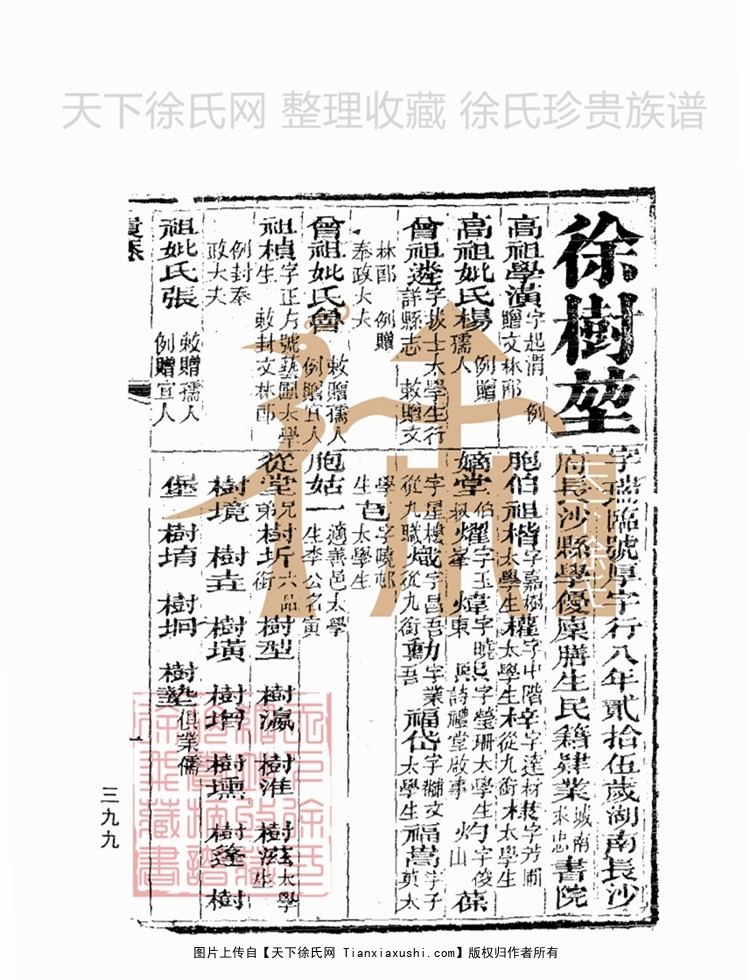 天下徐氏网 整理收藏 徐氏珍贵族谱
徐樹堃
字燕臨號厚字行八年貳拾伍歲湖南長沙
府長沙縣學優廩膳生民籍肄業城南求忠書院
高祖學濆字起渭 例贈文林郎
高祖妣氏楊 例贈孺人
曾祖遴字拔士太學生行詳縣志 敕贈文林郎 例贈奉政大夫
曾祖妣氏魯 敕贈孺人 例贈宜人
祖楨字正方號藝圃太學生 敕封文林郎 例封奉政大夫
祖妣氏張 敕贈孺人 例贈宜人
胞伯祖楷字嘉樹太學生 權字中階太學生 梓字達材從九銜 字芳圃太學生
嫡堂伯叔耀字玉峯 煒字曉東 字瑩珊太學生詩禮堂啟事 灼字俊山 葆
字星樓從九職 熾字昌吾從九銜 勳字業吾 福岱字黼文太學生 福嵩字子英太
學生 色字曉邨太學生
胞姑一適善邑太學生李公名寅
從堂兄弟樹圻六品銜 樹型 樹瀛 樹淮 樹滋太學生
樹境 樹垚 樹璜 樹增 樹壎 樹蓬 樹
堡 樹堉 樹坰 樹塾俱業儒
三九九
天下徐氏
图片上传自【天下徐氏网 Tianxiaxushi.com】版权归作者所有